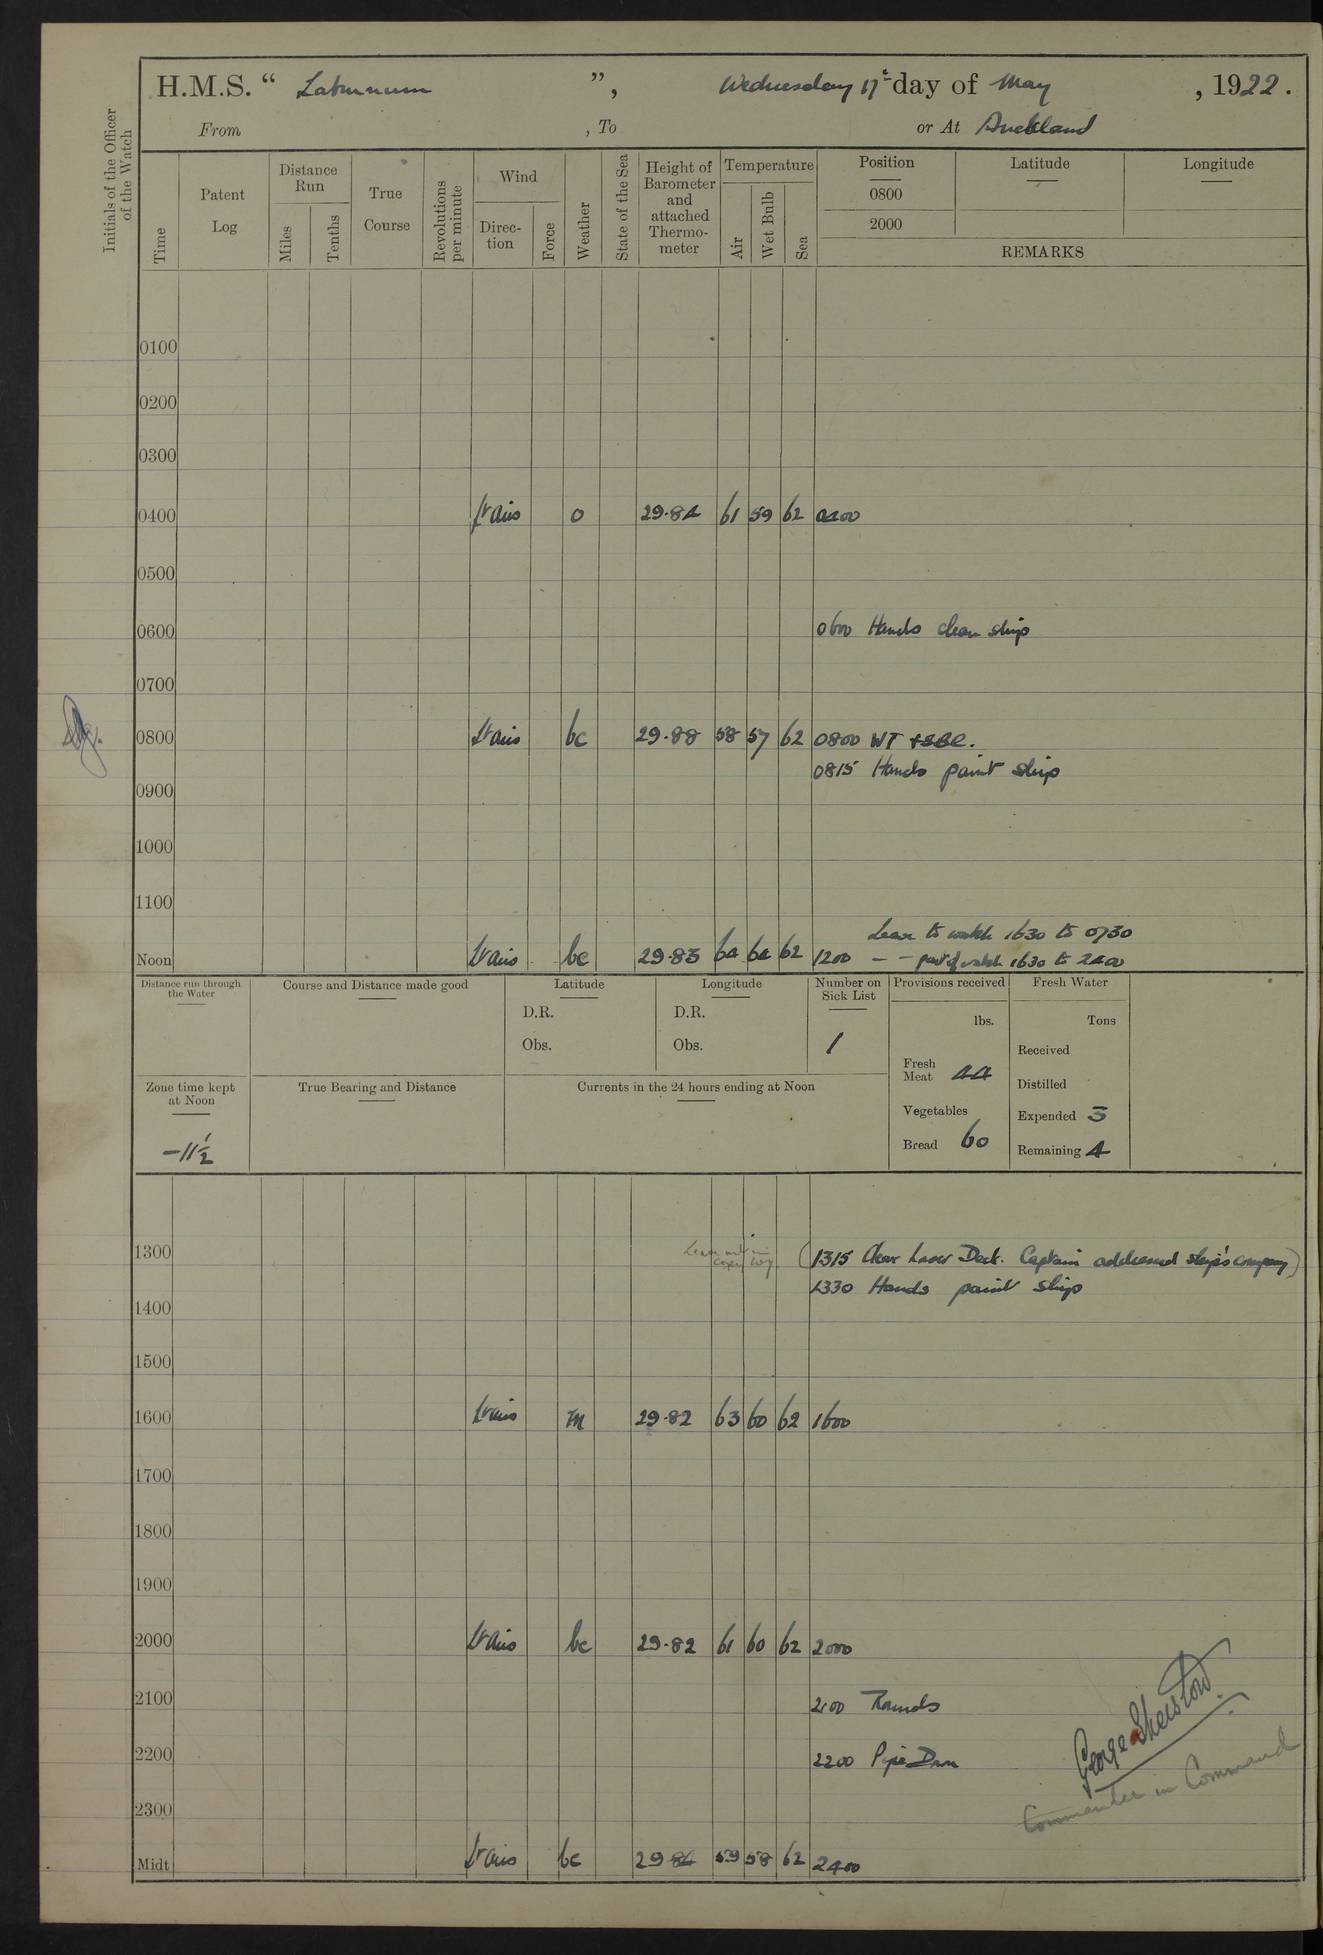 H.M.S. “ Laburnum ”, Wednesday 17th day of May , 1922.
From , To or At Auckland
Initials of the Officer of the Watch
Time
Patent Log
Distance Run
Miles
Tenths
True Course
Revolutions per minute
Wind
Direction
Force
Weather
State of the Sea
Height of Barometer and attached Thermometer
Temperature
Air
Wet Bulb
Sea
Position Latitude Longitude
0800
2000
REMARKS
0100
0200
0300
0400 Lt airs o 29.84 61 59 62 0400
0500
0600 0600 Hands clean ship
0700
0800 Lt airs bc 29.88 58 57 62 0800 WT
0815 Hands paint ship
0900
1000
1100
Leave to watch 1630 to 0730
Noon Lt airs bc 29.83 64 62 1200 – – part of watch 1630 to 2400
Distance run through the Water
Course and Distance made good
Latitude
D.R.
Obs.
Longitude
D.R.
Obs.
Number on Sick List
1
Provisions received
lbs.
Fresh Meat 44
Vegetables
Bread 60
Fresh Water
Tons
Received
Distilled
Expended 3
Remaining 4
Zone time kept at Noon
–11½
True Bearing and Distance
Currents in the 24 hours ending at Noon
1300 (1315 Clear Lower Deck. Captain addressed ship's company)
1330 Hands paint ship
1400
1500
1600 Lt airs m 29.82 63 60 62 1600
1700
1800
1900
2000 Lt airs bc 29.82 61 60 62 2000
2100 2100 Rounds
2200 2200 Pipe Down
2300
George
Commander in Command
Midt Lt airs bc 29 84 59 58 62 2400